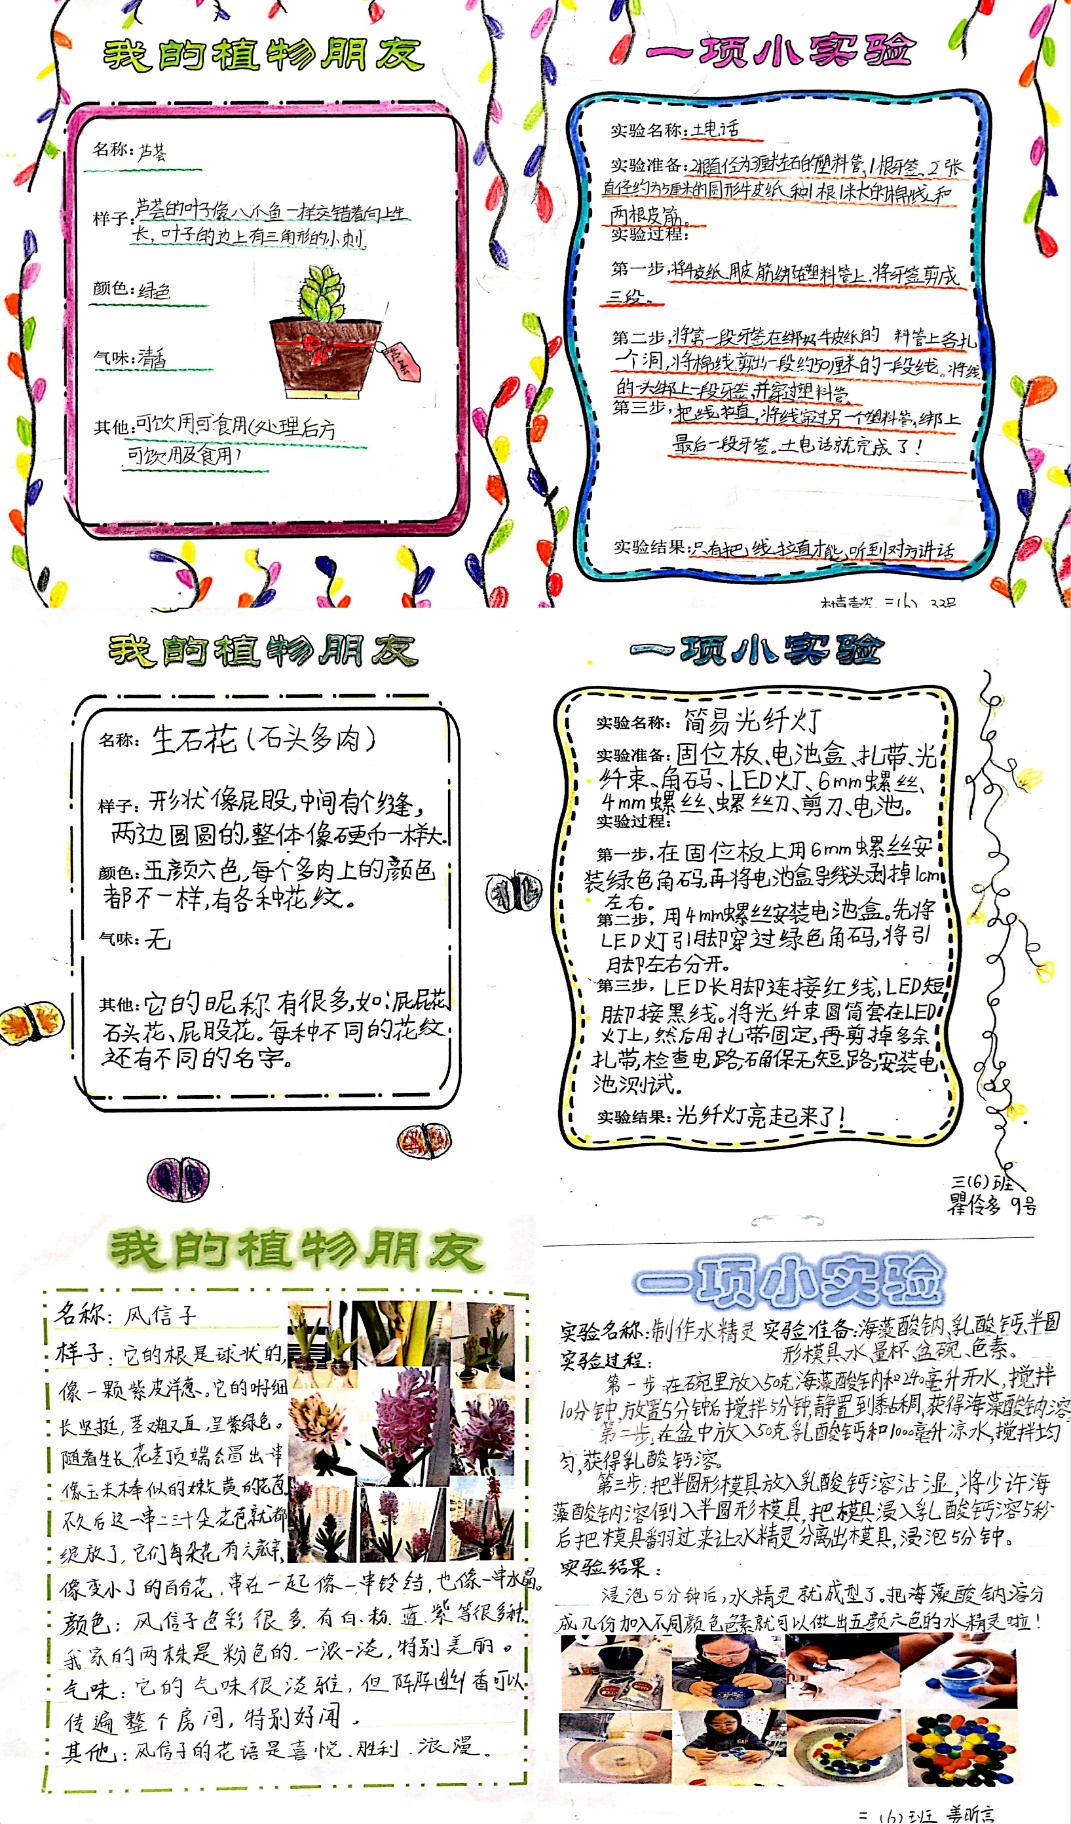 我的植物朋友
名称：芦荟
样子：芦荟的叶子像八爪鱼一样交错着向上生
长，叶子的边上有三角形的小刺
颜色：绿色
气味：清香
其他：可饮用可食用（处理后方
可饮用及食用）
芦荟
一项小实验
实验名称：土电话
实验准备：2根直径为3厘米左右的塑料管，1根牙签、2张
直径约为5厘米的圆形牛皮纸和1根1米长的棉线和
两根皮筋。
实验过程：
第一步，将牛皮纸用皮筋绑在塑料管上，将牙签剪成
三段。
第二步，将第一段牙签在绑好牛皮纸的 料管上各扎
个洞，将棉线剪出一段约50厘米的一段线。将线
的一头绑上一段牙签，并穿过塑料管。
第三步，把线拉直，将线穿过另一个塑料管，绑上
最后一段牙签。土电话就完成了！
实验结果：只有把线拉直才能听到对方讲话
三（6） 33号
我的植物朋友
名称：生石花（石头多肉）
样子：形状像屁股，中间有个缝，
两边圆圆的，整体像硬币一样大。
颜色：五颜六色，每个多肉上的颜色
都不一样，有各种花纹。
气味：无
其他：它的昵称有很多，如：屁屁花、
石头花、屁股花。每种不同的花纹
还有不同的名字。
一项小实验
实验名称：简易光纤灯
实验准备：固位板、电池盒、扎带、光
纤束、角码、LED灯、6mm螺丝、
4mm螺丝、螺丝刀、剪刀、电池。
实验过程：
第一步，在固位板上用6mm螺丝安
装绿色角码，再将电池盒导线头剥掉1cm
左右。
第二步，用4mm螺丝安装电池盒。先将
LED灯引脚穿过绿色角码，将引
脚左右分开。
第三步，LED长脚连接红线，LED短
脚接黑线。将光纤束圆筒套在LED
灯上，然后用扎带固定，再剪掉多余
扎带，检查电路，确保无短路，安装电
池测试。
实验结果：光纤灯亮起来了！
三（6）班
瞿伶多 9号
我的植物朋友
名称：风信子
样子：它的根是球状的，
像一颗紫皮洋葱。它的叶细
长坚挺，茎又粗又直，呈紫绿色。
随着生长花茎顶端会冒出一串
像玉米棒似的嫩黄的花苞
不久后这一串二三十朵花苞就都
绽放了，它们每朵花有六瓣，
像变小了的百合花，串在一起像一串铃铛，也像一串水晶。
颜色：风信子色彩很多，有白、粉、蓝、紫等很多种。
我家的两株是粉色的，一浓一淡，特别美丽。
气味：它的气味很淡雅，但阵阵幽香可以
传遍整个房间，特别好闻。
其他：风信子的花语是喜悦、胜利、浪漫。
一项小实验
实验名称：制作水精灵 实验准备：海藻酸钠、乳酸钙、半圆
形模具、水、量杯、盆、碗、色素。
实验过程：
第一步：在碗里放入50克海藻酸钠和240毫升开水，搅拌
10分钟，放置5分钟后搅拌5分钟，静置到黏稠，获得海藻酸钠溶
第二步：在盆中放入50克乳酸钙和1000毫升凉水，搅拌均
匀，获得乳酸钙溶。
第三步：把半圆形模具放入乳酸钙溶沾湿，将少许海
藻酸钠溶倒入半圆形模具，把模具浸入乳酸钙溶5秒
后把模具翻过来让水精灵分离出模具，浸泡5分钟。
实验结果：
浸泡5分钟后，水精灵就成型了。把海藻酸钠溶分
成几份加入不同颜色色素就可以做出五颜六色的水精灵啦！
三（6）班 姜昕言